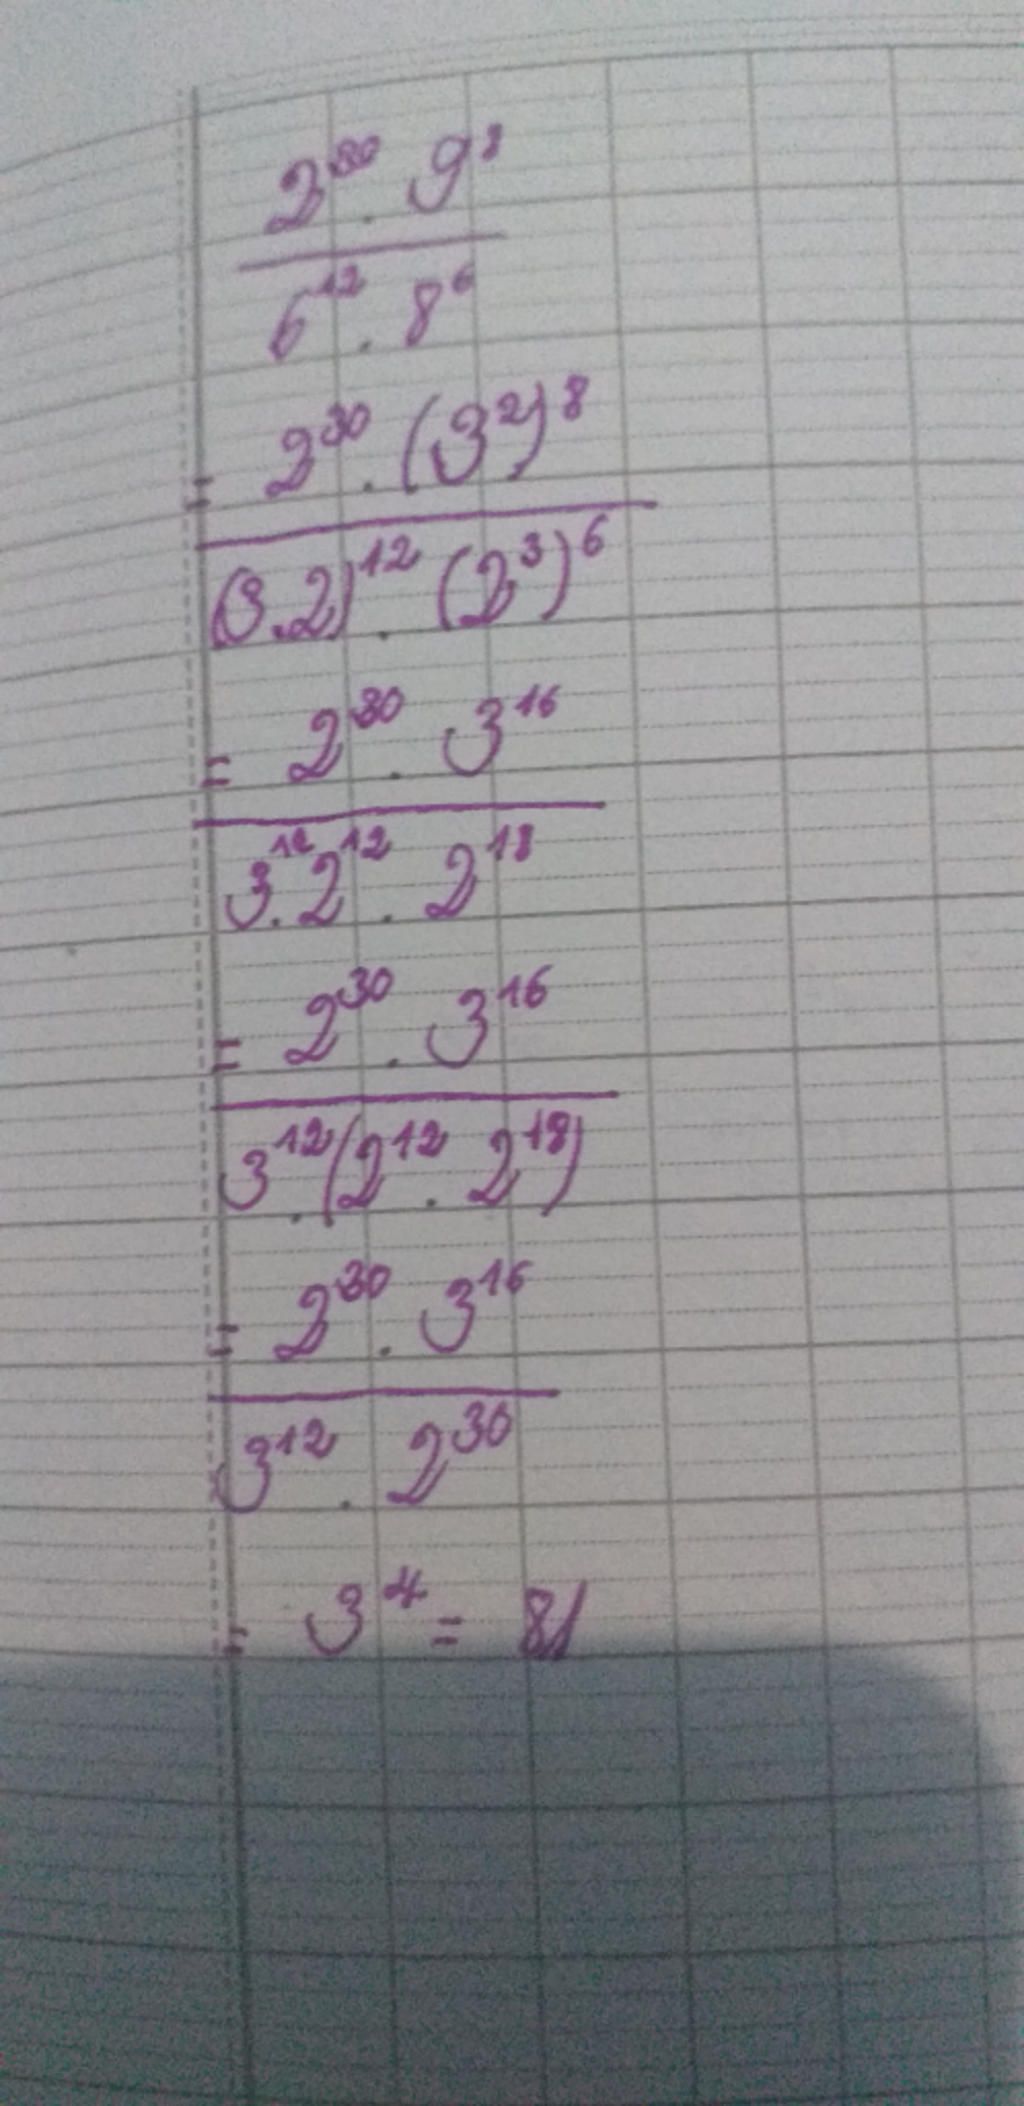 2³⁰ . 9⁸
6¹² . 8⁶
= 2³⁰ . (3²)⁸
(3.2)¹² . (2³)⁶
= 2³⁰ . 3¹⁶
3¹² . 2¹² . 2¹⁸
= 2³⁰ . 3¹⁶
3¹² . (2¹² . 2¹⁸)
= 2³⁰ . 3¹⁶
3¹² . 2³⁰
= 3⁴ = 81